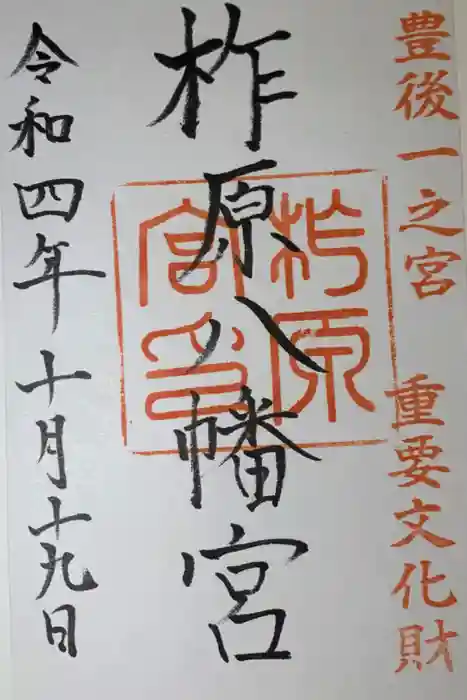 豊後一之宮 重要文化財
柞原八幡宮
柞原宮印
令和四年十月十九日